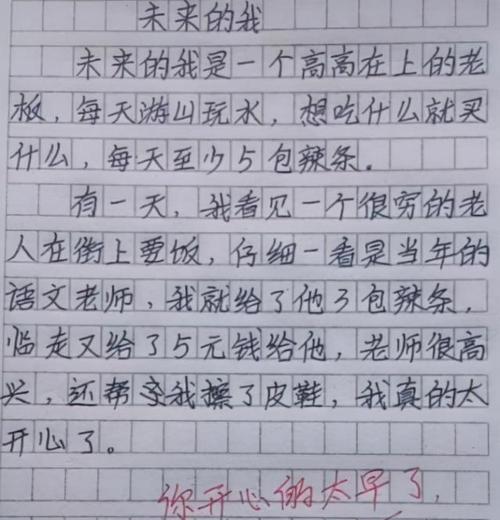 未来的我
未来的我是一个高高在上的老
板，每天游山玩水，想吃什么就买
什么，每天至少5包辣条。
有一天，我看见一个很穷的老
人在街上要饭，仔细一看是当年的
语文老师，我就给了他3包辣条，
临走又给了5元钱给他，老师很高
兴，还帮我擦了皮鞋，我真的太
开心了。
你开心的太早了，